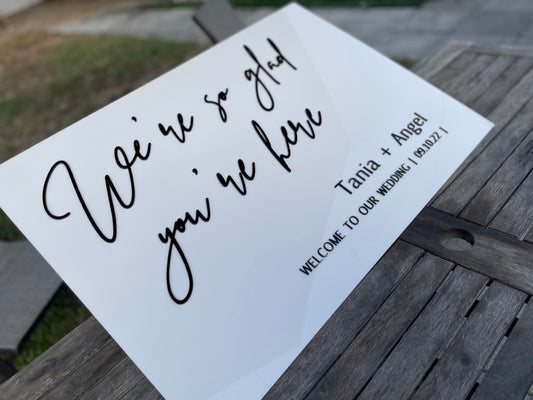 We're so glad
you're here
Tania + Angel
WELCOME TO OUR WEDDING | 09.10.22 |